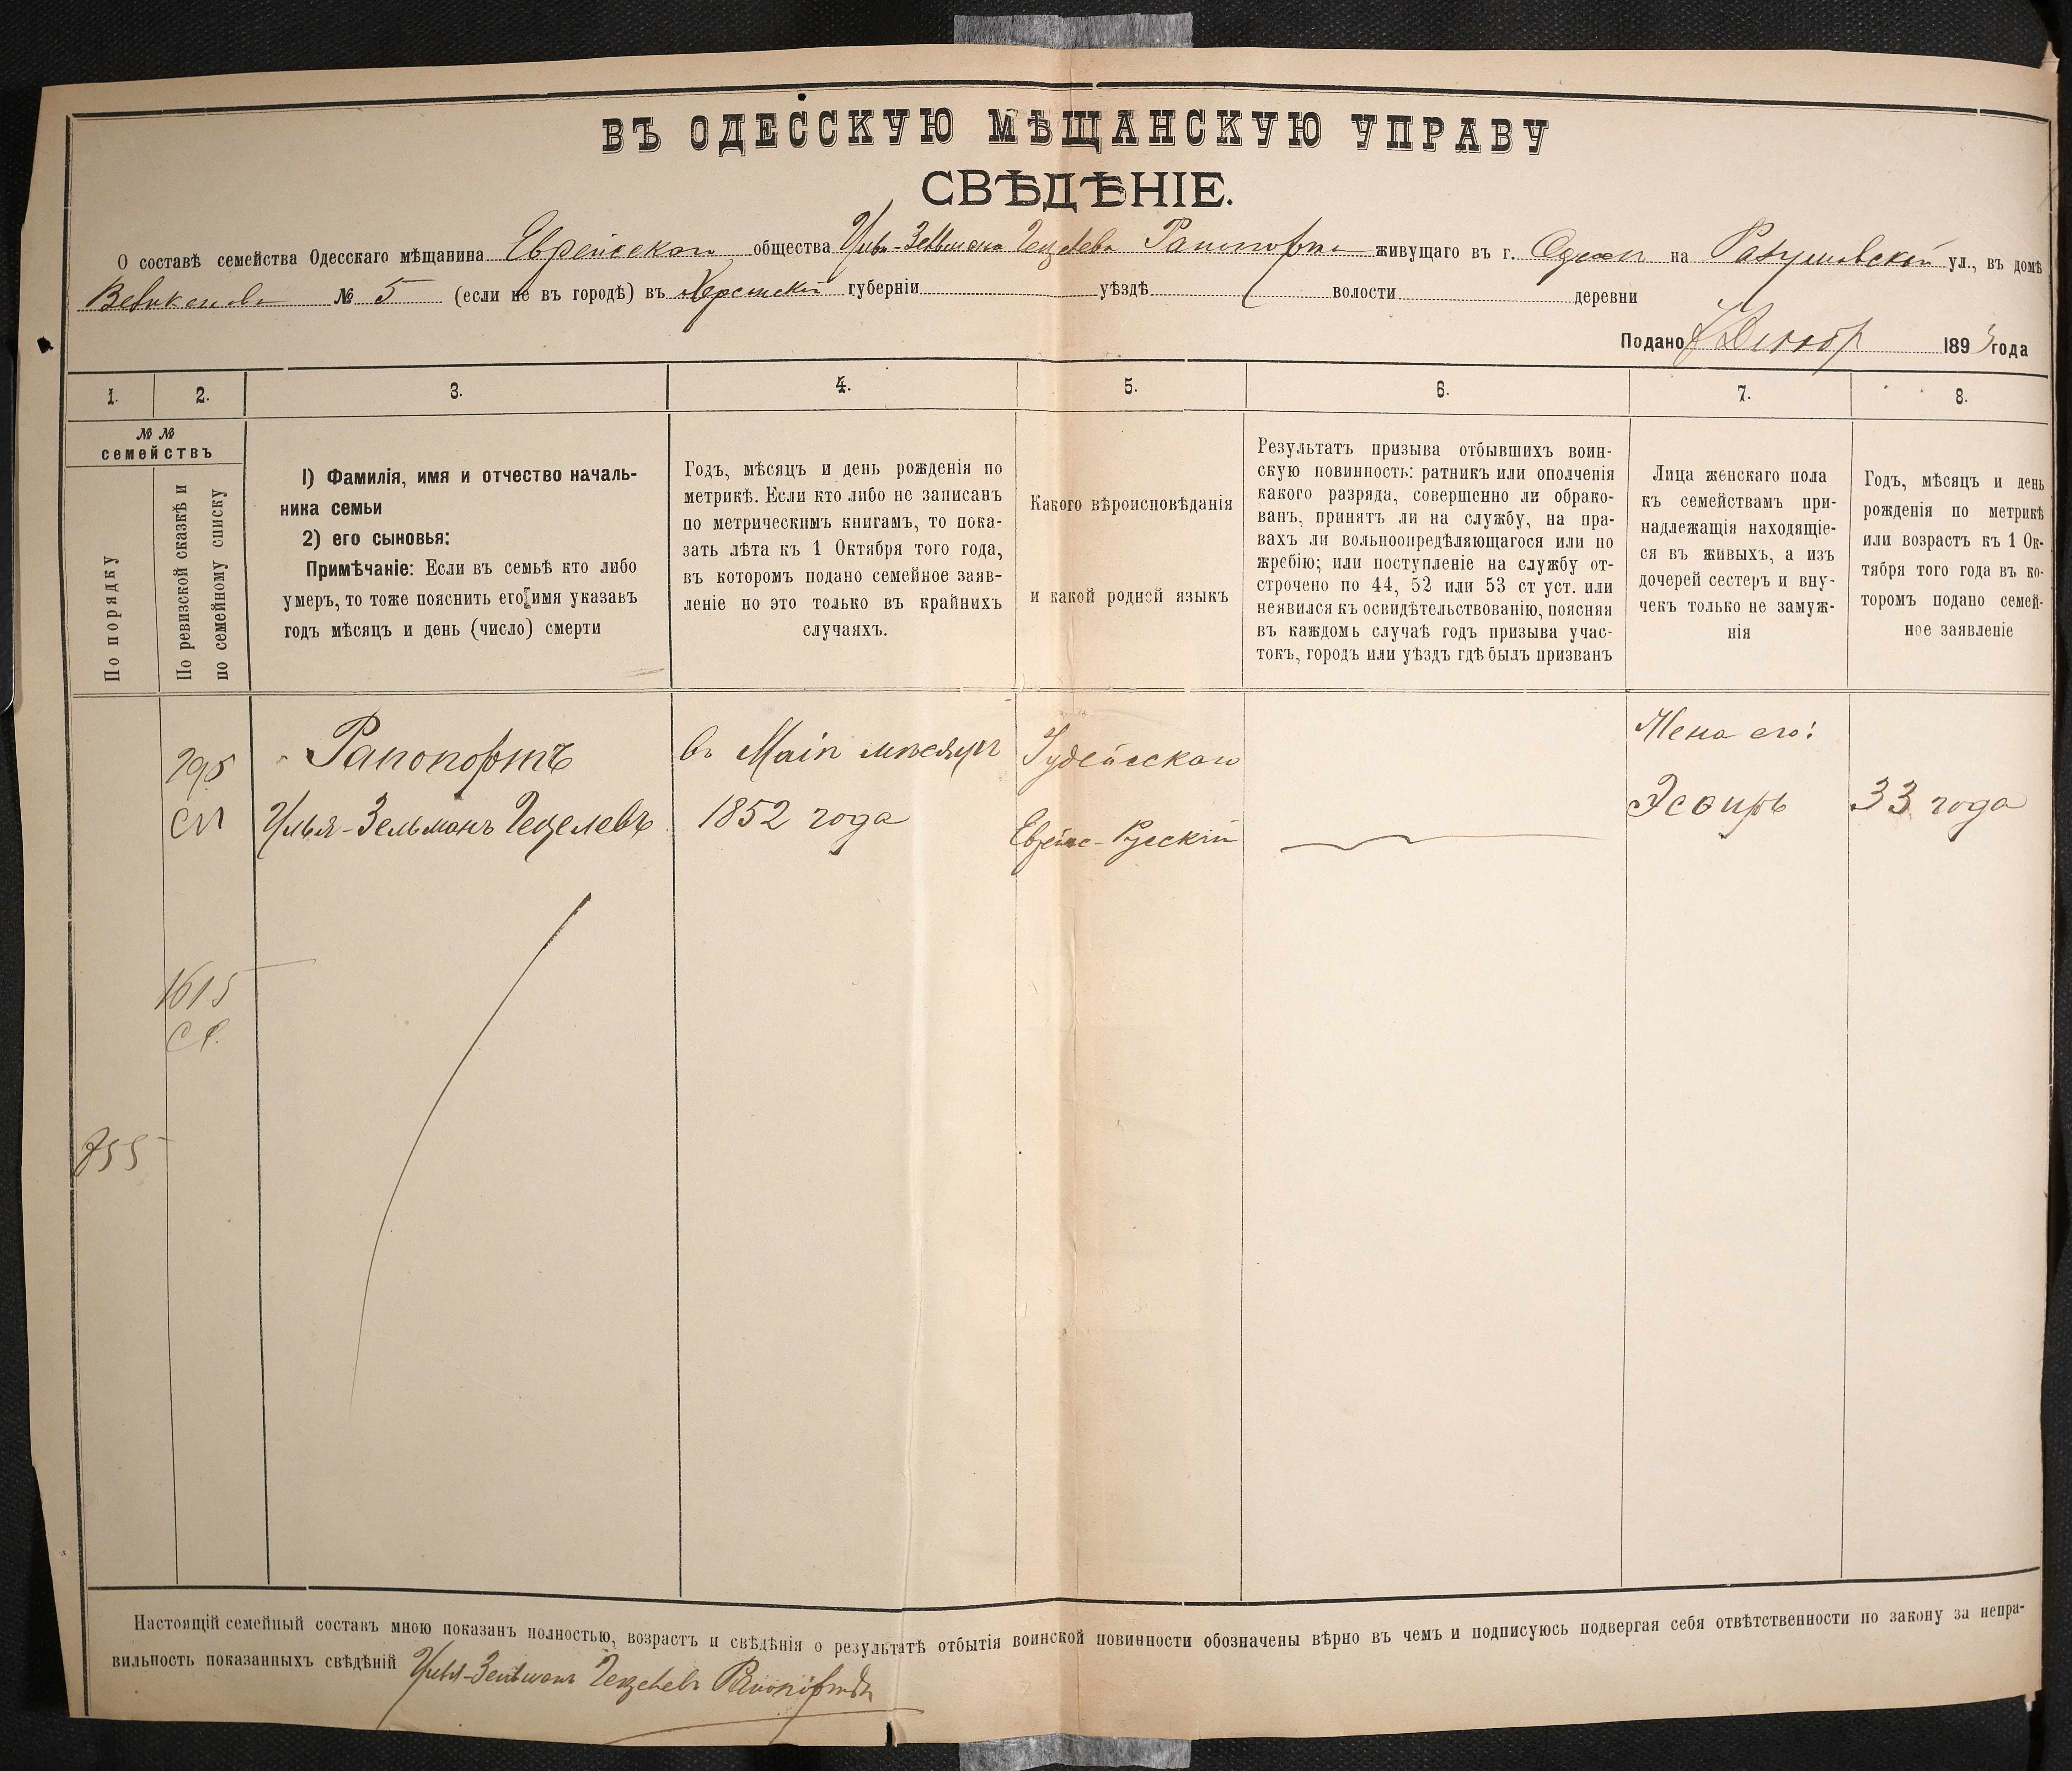 ВЪ ОДЕССКУЮ МѢЩАНСКУЮ УПРАВУ
СВѢДѢНІЕ.
О составѣ семейства Одесскаго мѣщанина Еврейскаго общества Илья-Зельмана Гецелева Рапопорта живущаго въ г. Одессѣ на ул., въ домѣ
№ 5 (если не въ городѣ) въ Херсонской губерніи уѣздѣ волости деревни
Подано Декабр 1893 года
1. 2. 3. 4. 5. 6. 7. 8.
№ №
семействъ
По порядку
По ревизской сказкѣ и
по семейному списку
1) Фамилія, имя и отчество началь-
ника семьи
2) его сыновья:
Примѣчаніе: Если въ семьѣ кто либо
умеръ, то тоже пояснить его имя указавъ
годъ мѣсяцъ и день (число) смерти
Годъ, мѣсяцъ и день рожденія по
метрикѣ. Если кто либо не записанъ
по метрическимъ книгамъ, то пока-
зать лѣта къ 1 Октября того года,
въ которомъ подано семейное заяв-
леніе но это только въ крайнихъ
случаяхъ.
Какого вѣроисповѣданія
и какой родной языкъ
Результатъ призыва отбывшихъ воин-
скую повинность: ратникъ или ополченія
какого разряда, совершенно ли обрако-
ванъ, принятъ ли на службу, на пра-
вахъ ли вольноопредѣляющагося или по
жребію; или поступленіе на службу от-
строчено по 44, 52 или 53 ст уст. или
неявился къ освидѣтельствованію, поясняя
въ каждомъ случаѣ годъ призыва учас-
токъ, городъ или уѣздъ гдѣ былъ призванъ
Лица женскаго пола
къ семействамъ при-
надлежащія находящіе-
ся въ живыхъ, а изъ
дочерей сестеръ и вну-
чекъ только не замуж-
нія
Годъ, мѣсяцъ и день
рожденія по метрикѣ
или возрастъ къ 1 Ок-
тября того года въ ко-
торомъ подано семей-
ное заявленіе
295
сп
Рапопортъ
Илья-Зельманъ Гецелевъ
въ Маѣ мѣсяцѣ
1852 года
Іудейскаго
Еврейс-Русскій
Жена его:
Эсѳирь
33 года
1615
855
Настоящій семейный составъ мною показанъ полностью, возрастъ и свѣдѣнія о результатѣ отбытія воинской повинности обозначены вѣрно въ чемъ и подписуюсь подвергая себя отвѣтственности по закону за непра-
вильность показанныхъ свѣдѣній Илья-Зельманъ Гецелевъ Рапопортъ